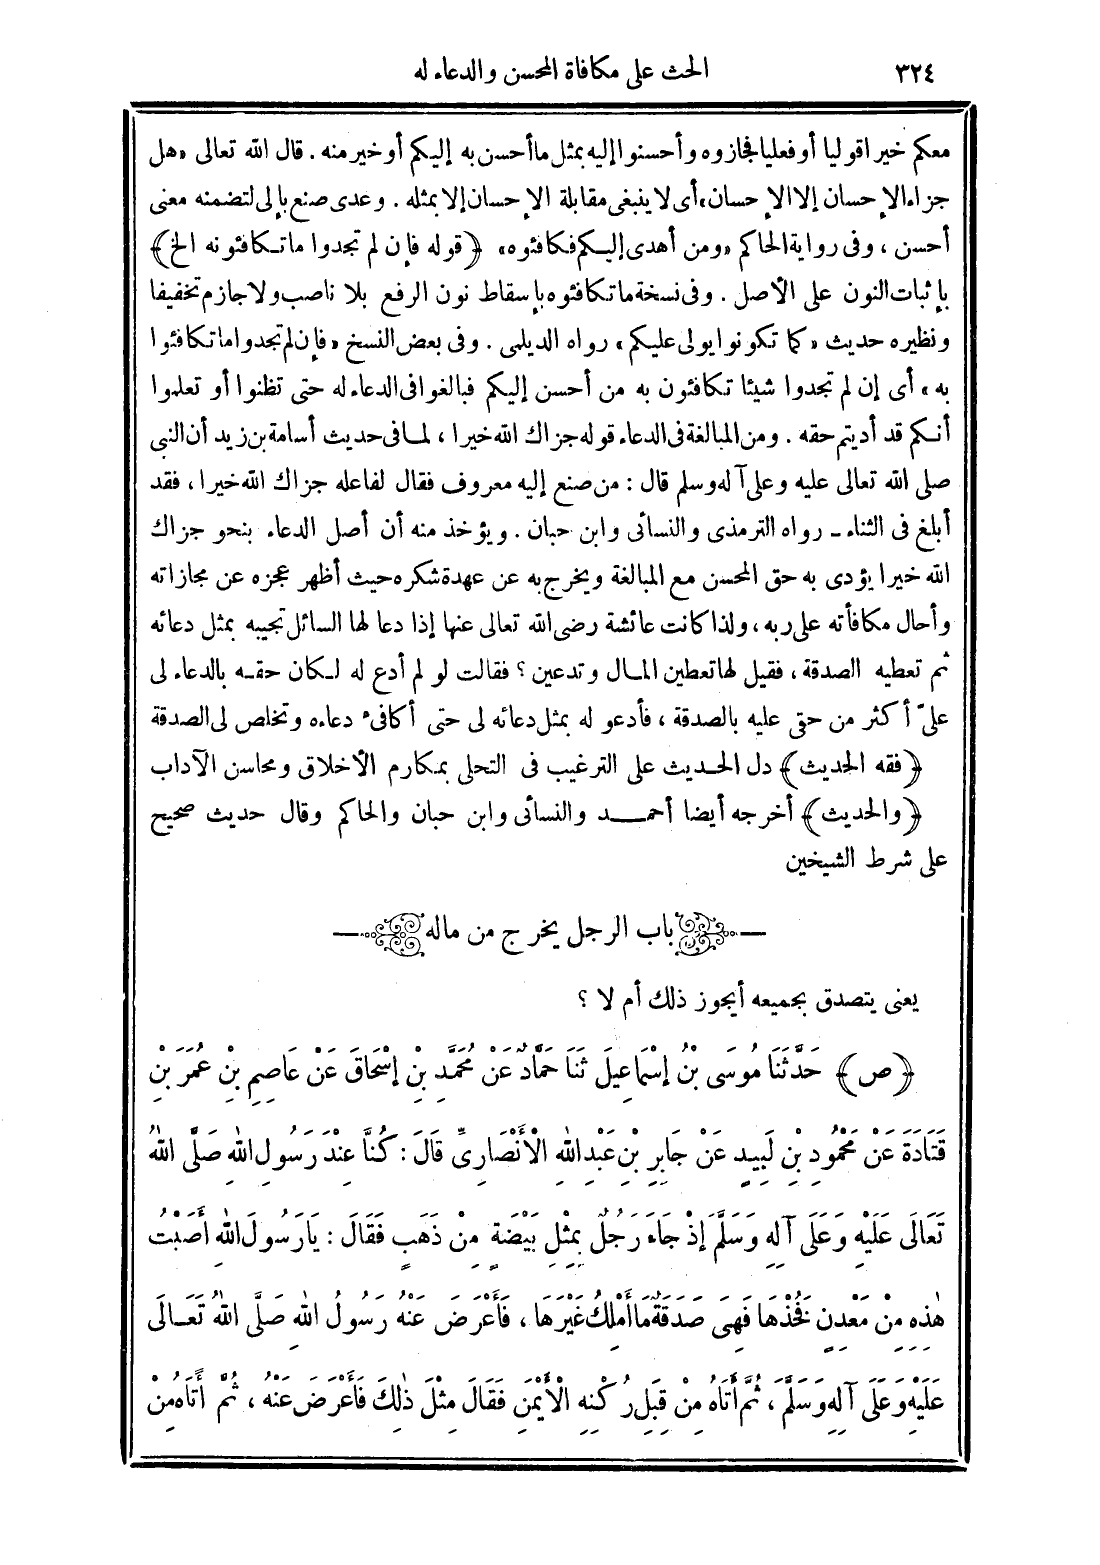 ٣٢٤
الحث على مكافاة المحسن والدعاء له
معكم خيرا قوليا أو فعليا فجازوه وأحسنوا إليه بمثل ما أحسن به إليكم أو خير منه . قال الله تعالى «هل
جزاء الإحسان إلا الإحسان» أى لا ينبغى مقابلة الإحسان إلا بمثله . وعدى صنع بإلى لتضمنه معنى
أحسن ، وفى رواية الحاكم «ومن أهدى إليكم فكافئوه» ﴿قوله فإن لم تجدوا ما تكافئونه الخ﴾
بإثبات النون على الأصل . وفى نسخة ما تكافئوه بإسقاط نون الرفع بلا ناصب ولا جازم تخفيفا
ونظيره حديث «كما تكونوا يولى عليكم» رواه الديلمى . وفى بعض النسخ «فإن لم تجدوا ما تكافئوا
به» أى إن لم تجدوا شيئا تكافئون به من أحسن إليكم فبالغوا فى الدعاء له حتى تظنوا أو تعلموا
أنكم قد أديتم حقه . ومن المبالغة فى الدعاء قوله جزاك الله خيرا ، لما فى حديث أسامة بن زيد أن النبى
صلى الله تعالى عليه وعلى آله وسلم قال : من صنع إليه معروف فقال لفاعله جزاك الله خيرا ، فقد
أبلغ فى الثناء ـ رواه الترمذى والنسائى وابن حبان . ويؤخذ منه أن أصل الدعاء بنحو جزاك
الله خيرا يؤدى به حق المحسن مع المبالغة ويخرج به عن عهدة شكره حيث أظهر عجزه عن مجازاته
وأحال مكافأته على ربه ، ولذا كانت عائشة رضى الله تعالى عنها إذا دعا لها السائل تجيبه بمثل دعائه
ثم تعطيه الصدقة ، فقيل لها تعطين المال وتدعين ؟ فقالت لو لم أدع له لكان حقه بالدعاء لى
علىّ أكثر من حقى عليه بالصدقة ، فأدعو له بمثل دعائه لى حتى أكافىء دعاءه وتخلص لى الصدقة
﴿فقه الحديث﴾ دل الحديث على الترغيب فى التحلى بمكارم الأخلاق ومحاسن الآداب
﴿والحديث﴾ أخرجه أيضا أحمد والنسائى وابن حبان والحاكم وقال حديث صحيح
على شرط الشيخين
باب الرجل يخرج من ماله
يعنى يتصدق بجميعه أيجوز ذلك أم لا ؟
﴿ص﴾ حَدَّثَنَا مُوسَى بْنُ إِسْمَاعِيلَ ثَنَا حَمَّادٌ عَنْ مُحَمَّدِ بْنِ إِسْحَاقَ عَنْ عَاصِمِ بْنِ عُمَرَ بْنِ
قَتَادَةَ عَنْ مَحْمُودِ بْنِ لَبِيدٍ عَنْ جَابِرِ بْنِ عَبْدِ اللهِ الْأَنْصَارِىِّ قَالَ : كُنَّا عِنْدَ رَسُولِ اللهِ صَلَّى اللهُ
تَعَالَى عَلَيْهِ وَعَلَى آلِهِ وَسَلَّمَ إِذْ جَاءَ رَجُلٌ بِمِثْلِ بَيْضَةٍ مِنْ ذَهَبٍ فَقَالَ : يَا رَسُولَ اللهِ أَصَبْتُ
هٰذِهِ مِنْ مَعْدِنٍ فَخُذْهَا فَهِىَ صَدَقَةٌ مَا أَمْلِكُ غَيْرَهَا ، فَأَعْرَضَ عَنْهُ رَسُولُ اللهِ صَلَّى اللهُ تَعَالَى
عَلَيْهِ وَعَلَى آلِهِ وَسَلَّمَ ، ثُمَّ أَتَاهُ مِنْ قِبَلِ رُكْنِهِ الْأَيْمَنِ فَقَالَ مِثْلَ ذٰلِكَ فَأَعْرَضَ عَنْهُ ، ثُمَّ أَتَاهُ مِنْ